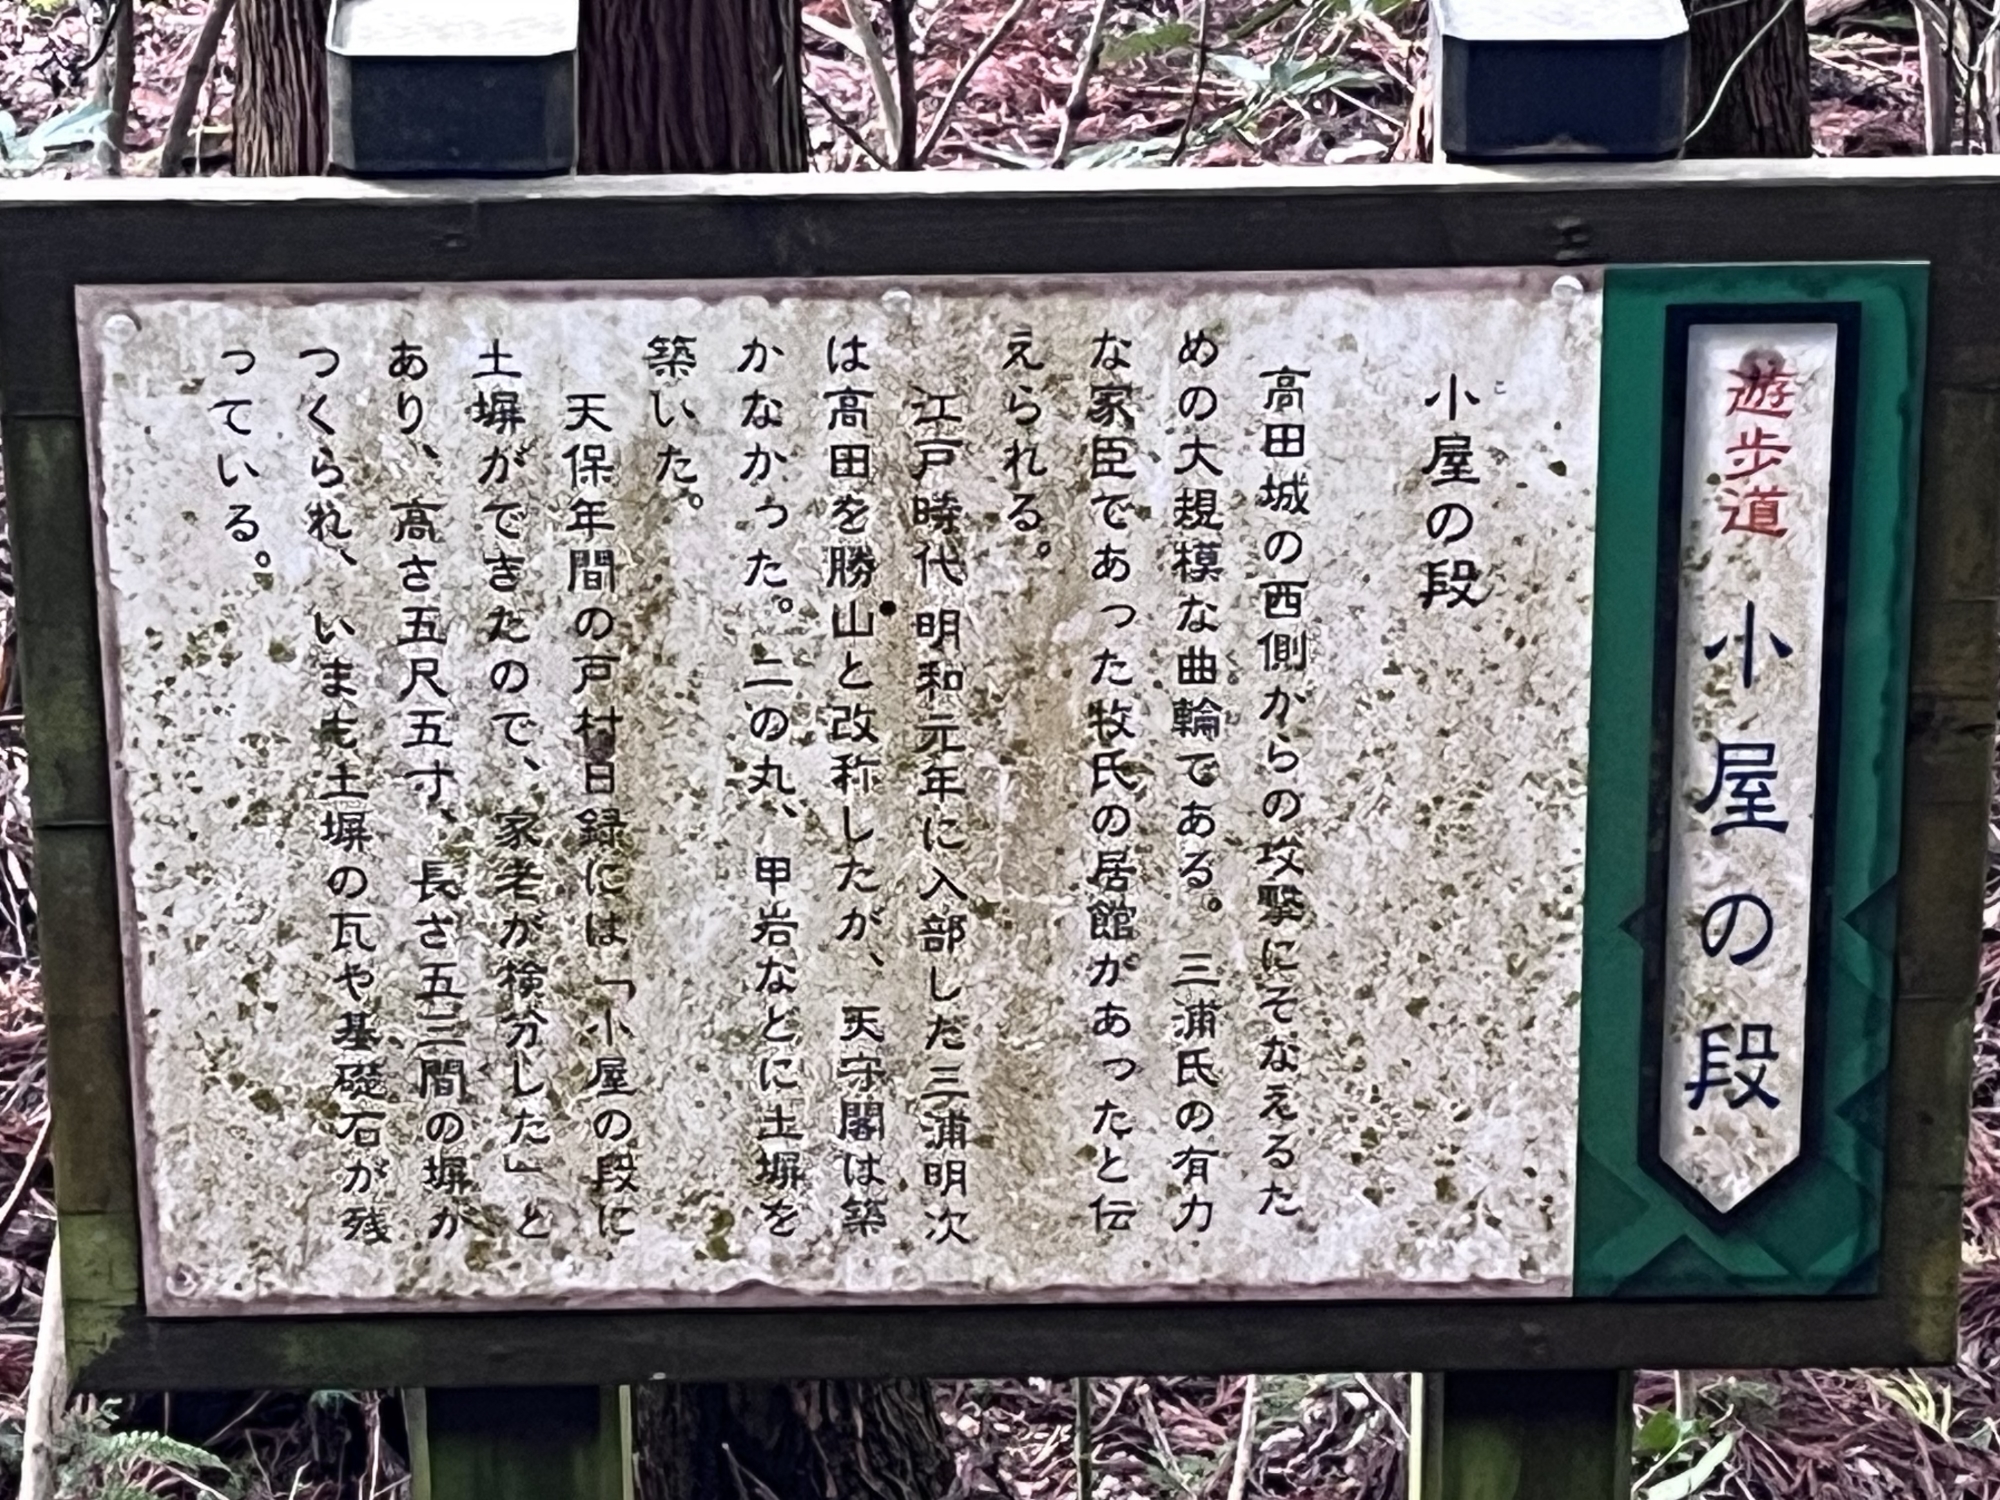 遊歩道 小屋の段
小屋の段
高田城の西側からの攻撃にそなえるた
めの大規模な曲輪である。三浦氏の有力
な家臣であった牧氏の居館があったと伝
えられる。
江戸時代明和元年に入部した三浦明次
は高田を勝山と改称したが、天守閣は築
かなかった。二の丸、甲岩などに土塀を
築いた。
天保年間の戸村日録には「小屋の段に
土塀ができたので、家老が検分した」と
あり、高さ五尺五寸、長さ五三間の塀が
つくられ、いまも土塀の瓦や基礎石が残
っている。